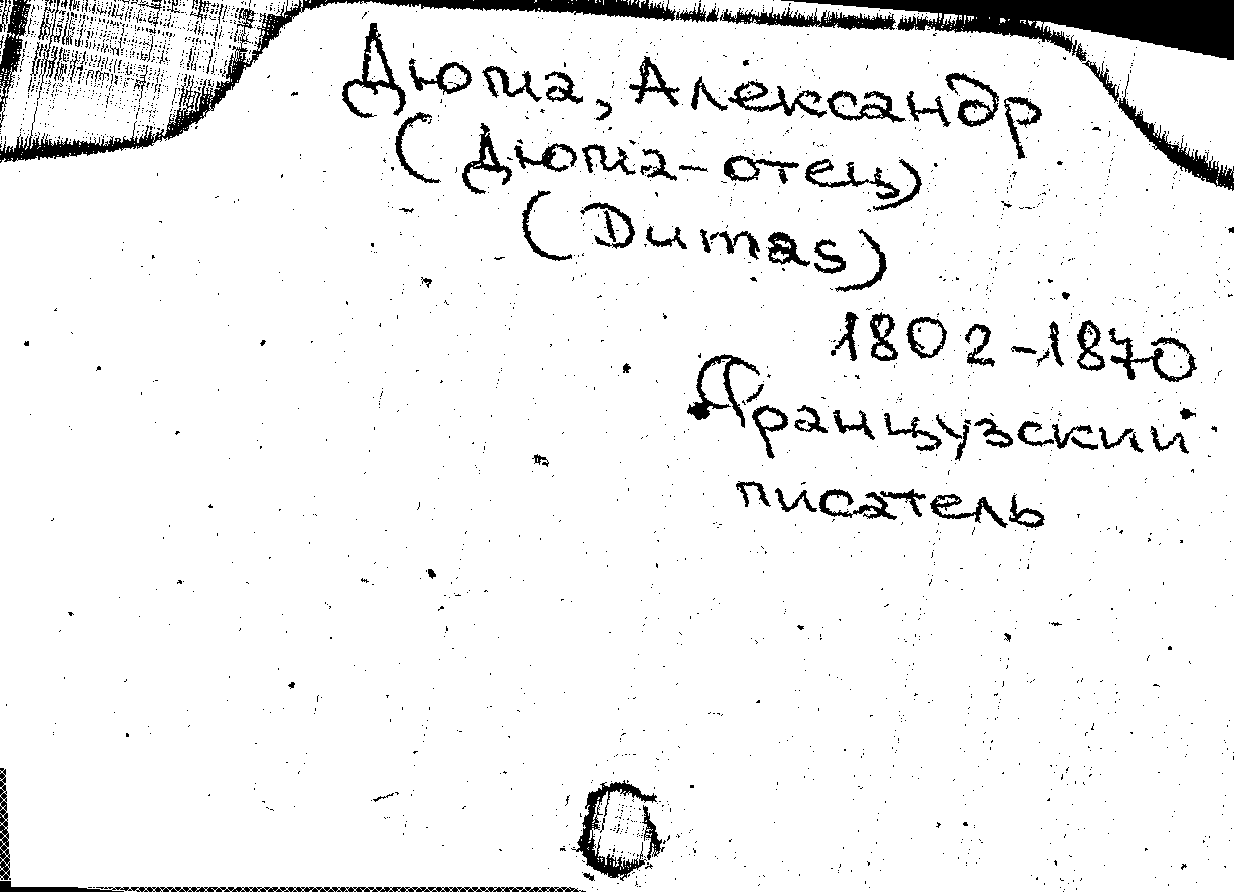 Дюма, Александр
(Дюма-отец)
(Dumas)
1802-1870
Французский
писатель